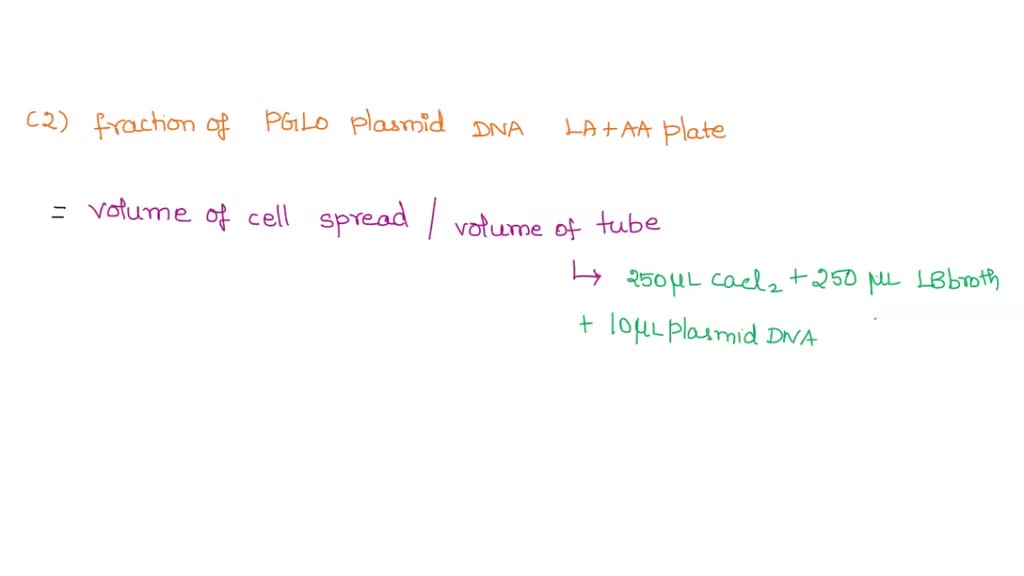 (2) fraction of PGLO plasmid DNA LA+AA plate
= volume of cell spread / volume of tube
↳ 250μL cacl2 + 250 μL LBbroth
+ 10μL plasmid DNA